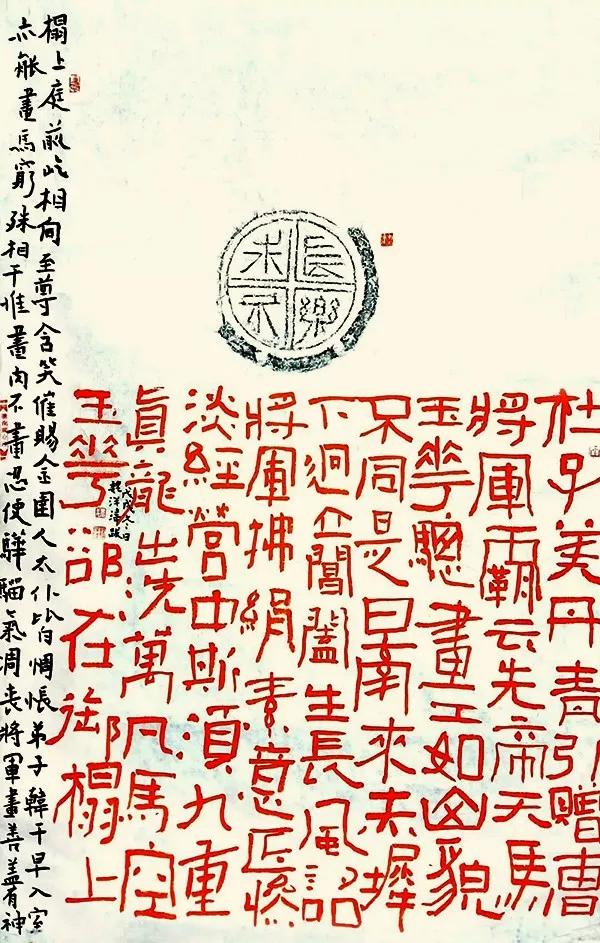 長樂
未央
杜子美丹青引贈曹
將軍霸云先帝天馬
玉花驄畫工如山貌
不同是日牽來赤墀
下迥立閶闔生長風詔
將軍拂絹素意匠慘
淡經營中斯須九重
眞龍出洗萬凡馬空
玉花卻在御榻上
榻上庭前屹相向至尊含笑催賜金圉人太仆皆惆悵弟子韓干早入室
亦能畫馬窮殊相干惟畫肉不畫忍使驊騮氣凋喪將軍畫善蓋有神
戊戌冬日